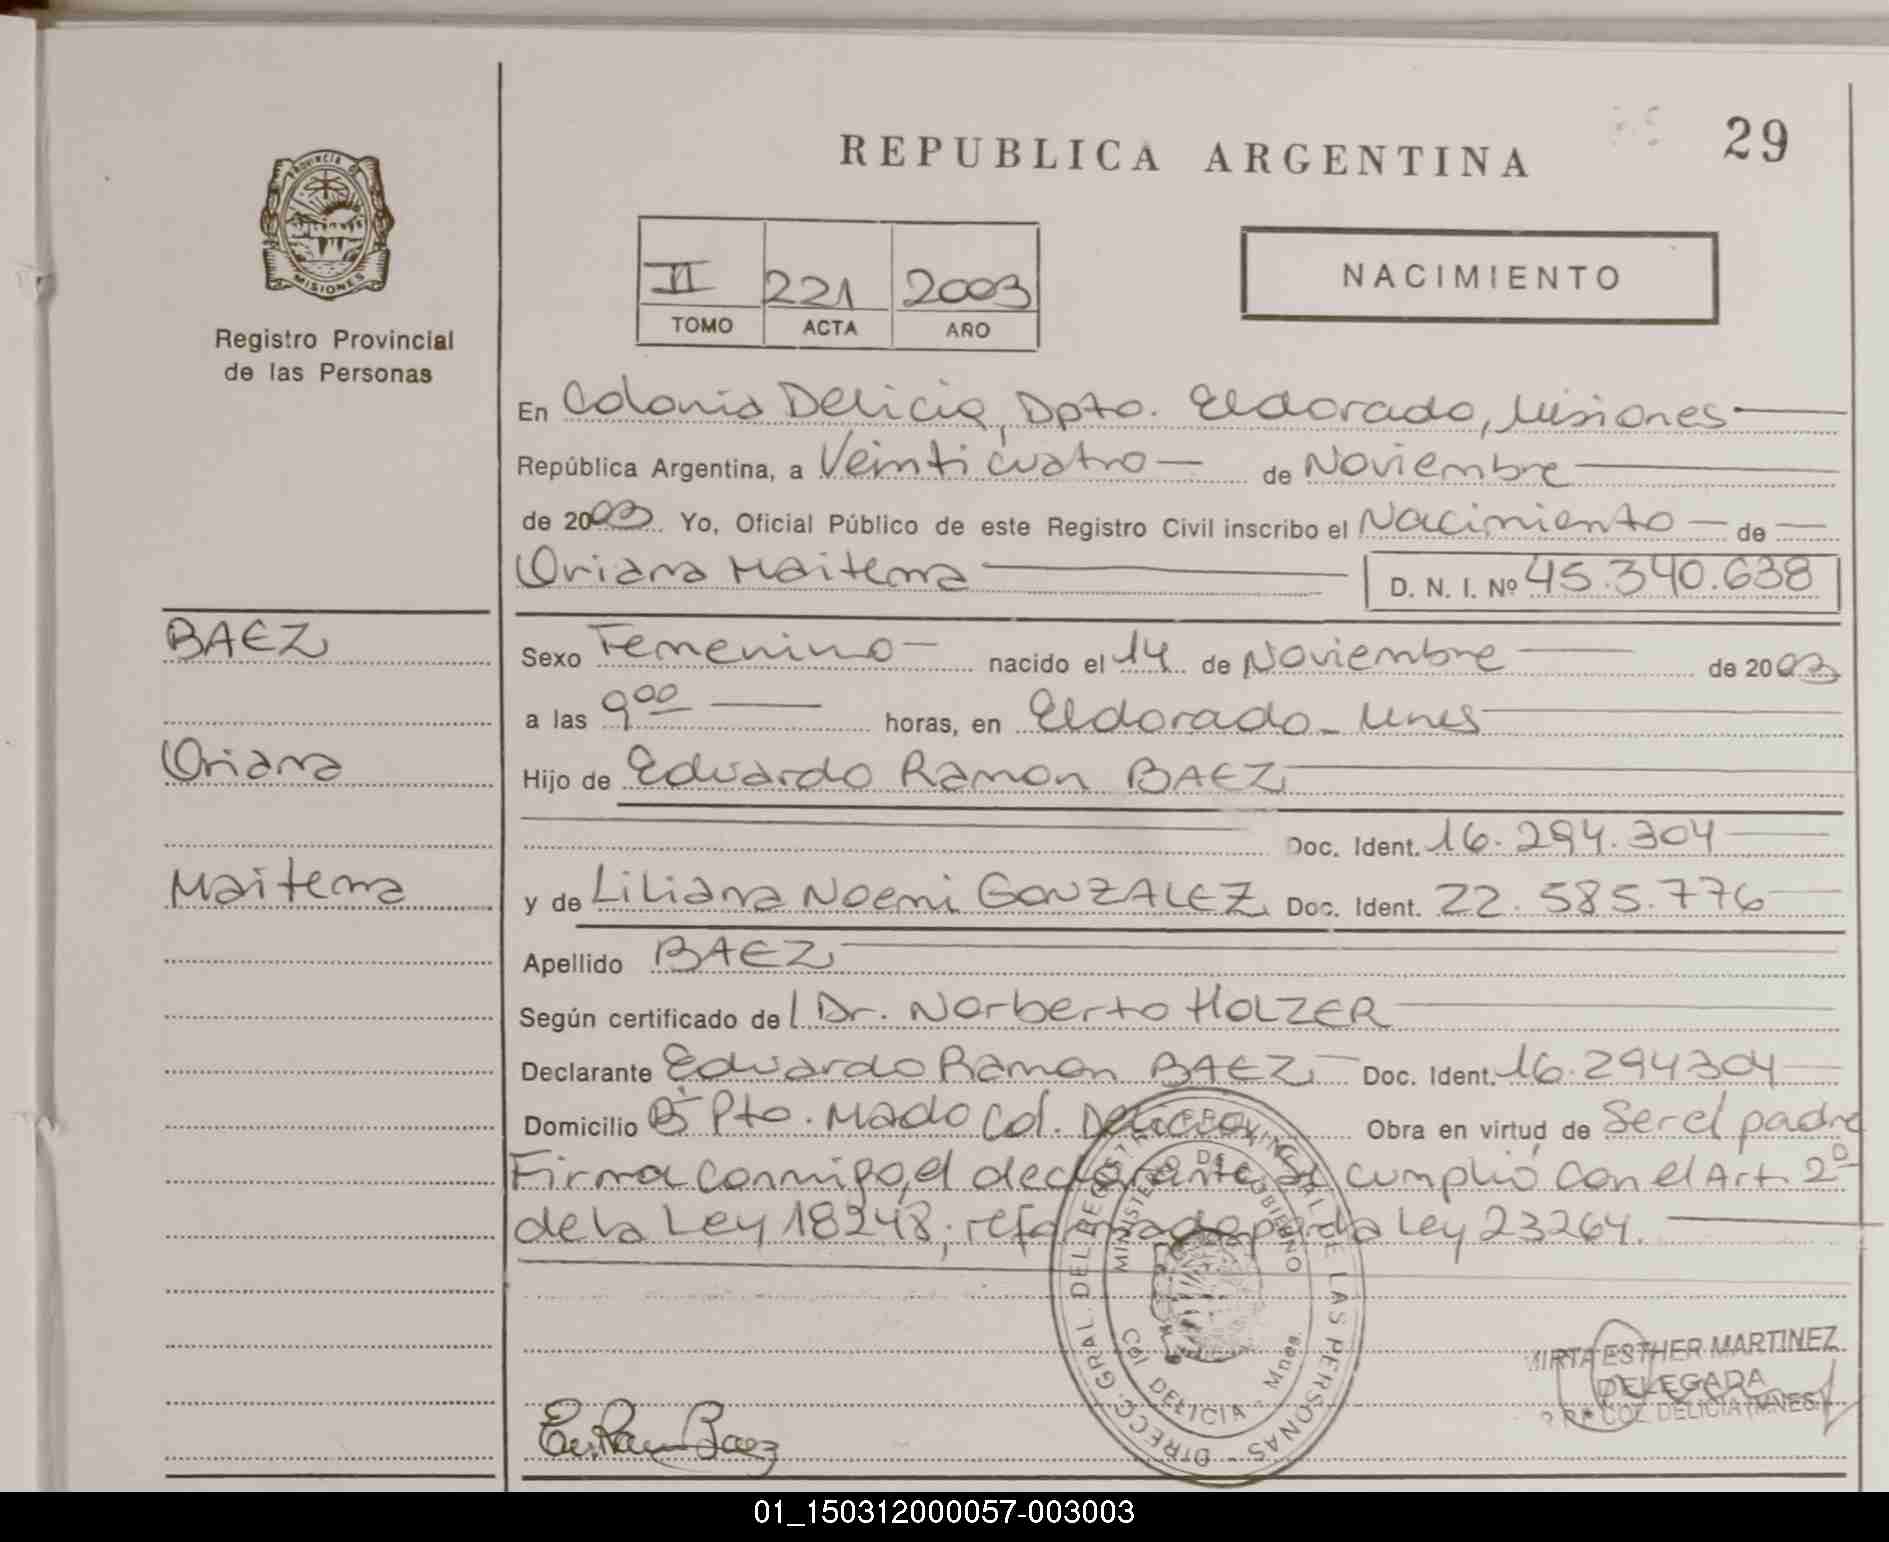 REPUBLICA ARGENTINA
29
PROVINCIA DE
MISIONES
Registro Provincial
de las Personas
II 221 2003
TOMO ACTA AÑO
NACIMIENTO
En Colonia Delicia, Dpto. Eldorado, Misiones
República Argentina, a Veinticuatro de Noviembre
de 2003 Yo, Oficial Público de este Registro Civil inscribo el Nacimiento de
Oriana Maitena
D. N. I. Nº 45.340.638
BAEZ
Oriana
Maitena
Sexo Femenino nacido el 14 de Noviembre de 2003
a las 9 00 horas, en Eldorado - Mnes
Hijo de Eduardo Ramon BAEZ
Doc. Ident. 16.294.304
y de Liliana Noemi GONZALEZ Doc. Ident. 22.585.776
Apellido BAEZ
Según certificado de Dr. Norberto HOLZER
Declarante Eduardo Ramon BAEZ Doc. Ident. 16.294304
Domicilio Bº Pto. Mado Col. Delicia Obra en virtud de Ser el padre
Firma conmigo, el declarante Se cumplió con el Art. 2º
de la Ley 18248, reformado por la Ley 23264.
DIRECC. GRAL. DEL REGISTRO PROVINCIAL DE LAS PERSONAS
MINISTERIO DE GOBIERNO
Col DELICIA - Mnes.
MIRTA ESTHER MARTINEZ
DELEGADA
COL DELICIA (MNES)
Baez
01_150312000057-003003